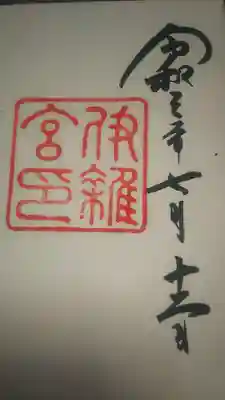 令和三年七月十二日
伊雜
宮印